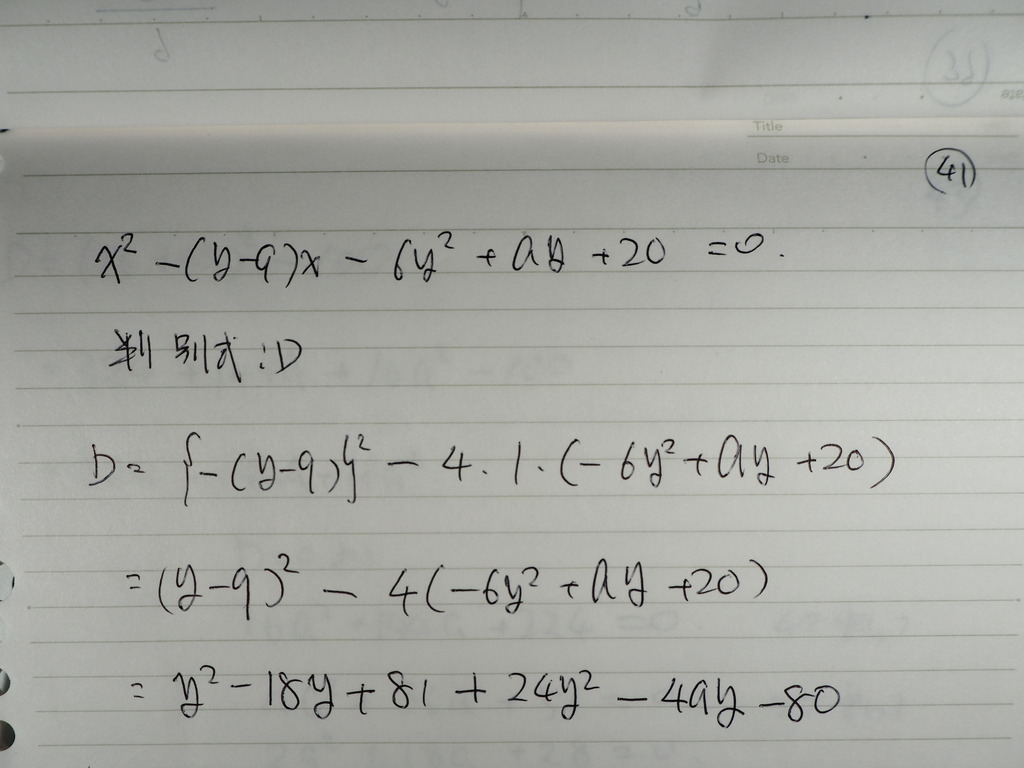 Title
Date
㊶
x² -(y-9)x - 6y² + ay + 20 = 0.
判別式:D
D = {-(y-9)}² - 4・1・(-6y² + ay + 20)
= (y-9)² - 4(-6y² + ay + 20)
= y² - 18y + 81 + 24y² - 4ay - 80